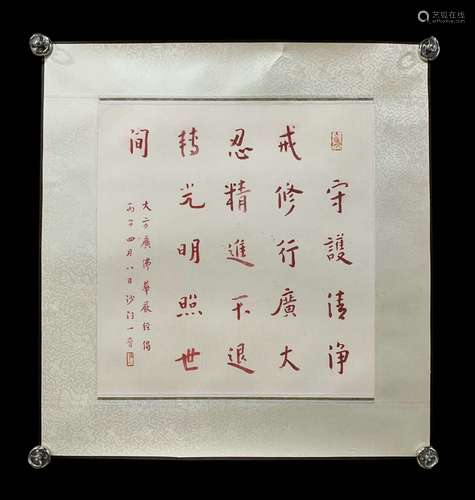 守護清淨
戒修行廣大
忍精進不退
轉光明照世
間
大方廣佛華嚴經偈
丙子四月八日沙門一音
艺狐在线
artfoxlive.com